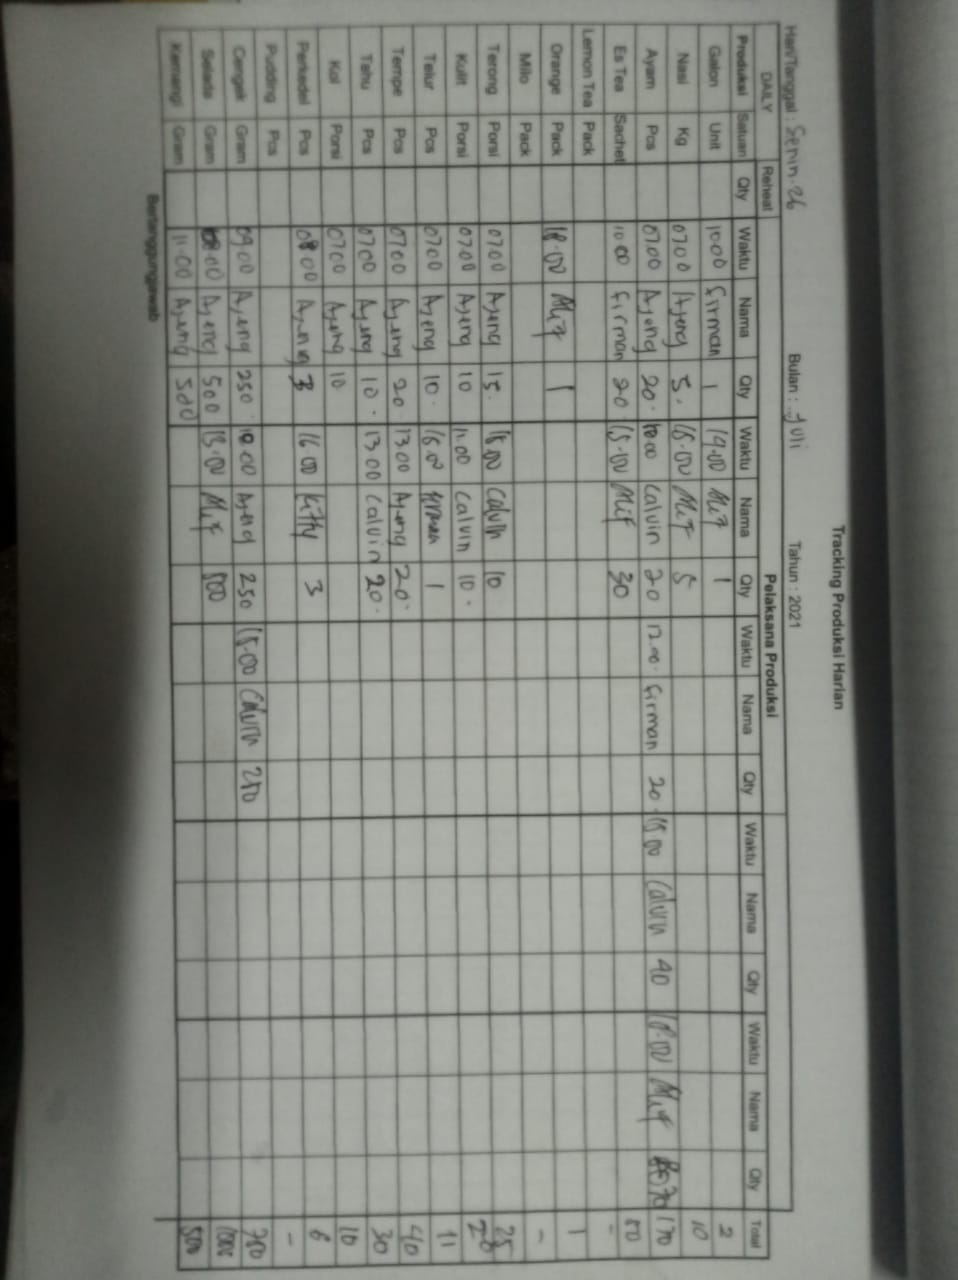 Tracking Produksi Harian
Hari/Tanggal : Senin. 26 Bulan : Juli Tahun : 2021
DAILY Reheat Pelaksana Produksi Total
Produksi Satuan Qty Waktu Nama Qty Waktu Nama Qty Waktu Nama Qty Waktu Nama Qty Waktu Nama Qty
Galon Unit 10.00 Firman 1 19.00 1 2
Nasi Kg 07.00 Ajeng 5. 5 10
Ayam Pcs 07.00 Ajeng 20. 10.00 Calvin 20 12.00. Firman 20. 15.00 Calvin 40 18.00 70 170
Es Tea Sachet 10.00 Firman 20 15.00 Mif 30 50
Lemon Tea Pack -
Orange Pack 18.00 1 1
Milo Pack -
Terong Porsi 07.00 Ajeng 15. Calvin 10 25
Kulit Porsi 07.00 Ajeng 10 11.00 Calvin 10.
Telur Pcs 07.00 Ajeng 10. 16.00 Firman 1 11
Tempe Pcs 07.00 Ajeng 20 13.00 Ajeng 20. 40
Tahu Pcs 07.00 Ajeng 10. 13.00 Calvin 20. 30
Kol Porsi 07.00 Ajeng 10 10
Perkedel Pcs 08.00 Ajeng 3 16.00 Kitty 3 6
Pudding Pcs -
Cengek Gram 09.00 Ajeng 250. 10.00 Ajeng 250 15.00 Calvin 250
Selada Gram Ajeng 500 Mif 500 1000
Kemangi Gram 11.00 Ajeng 500 500
Bertanggungjawab